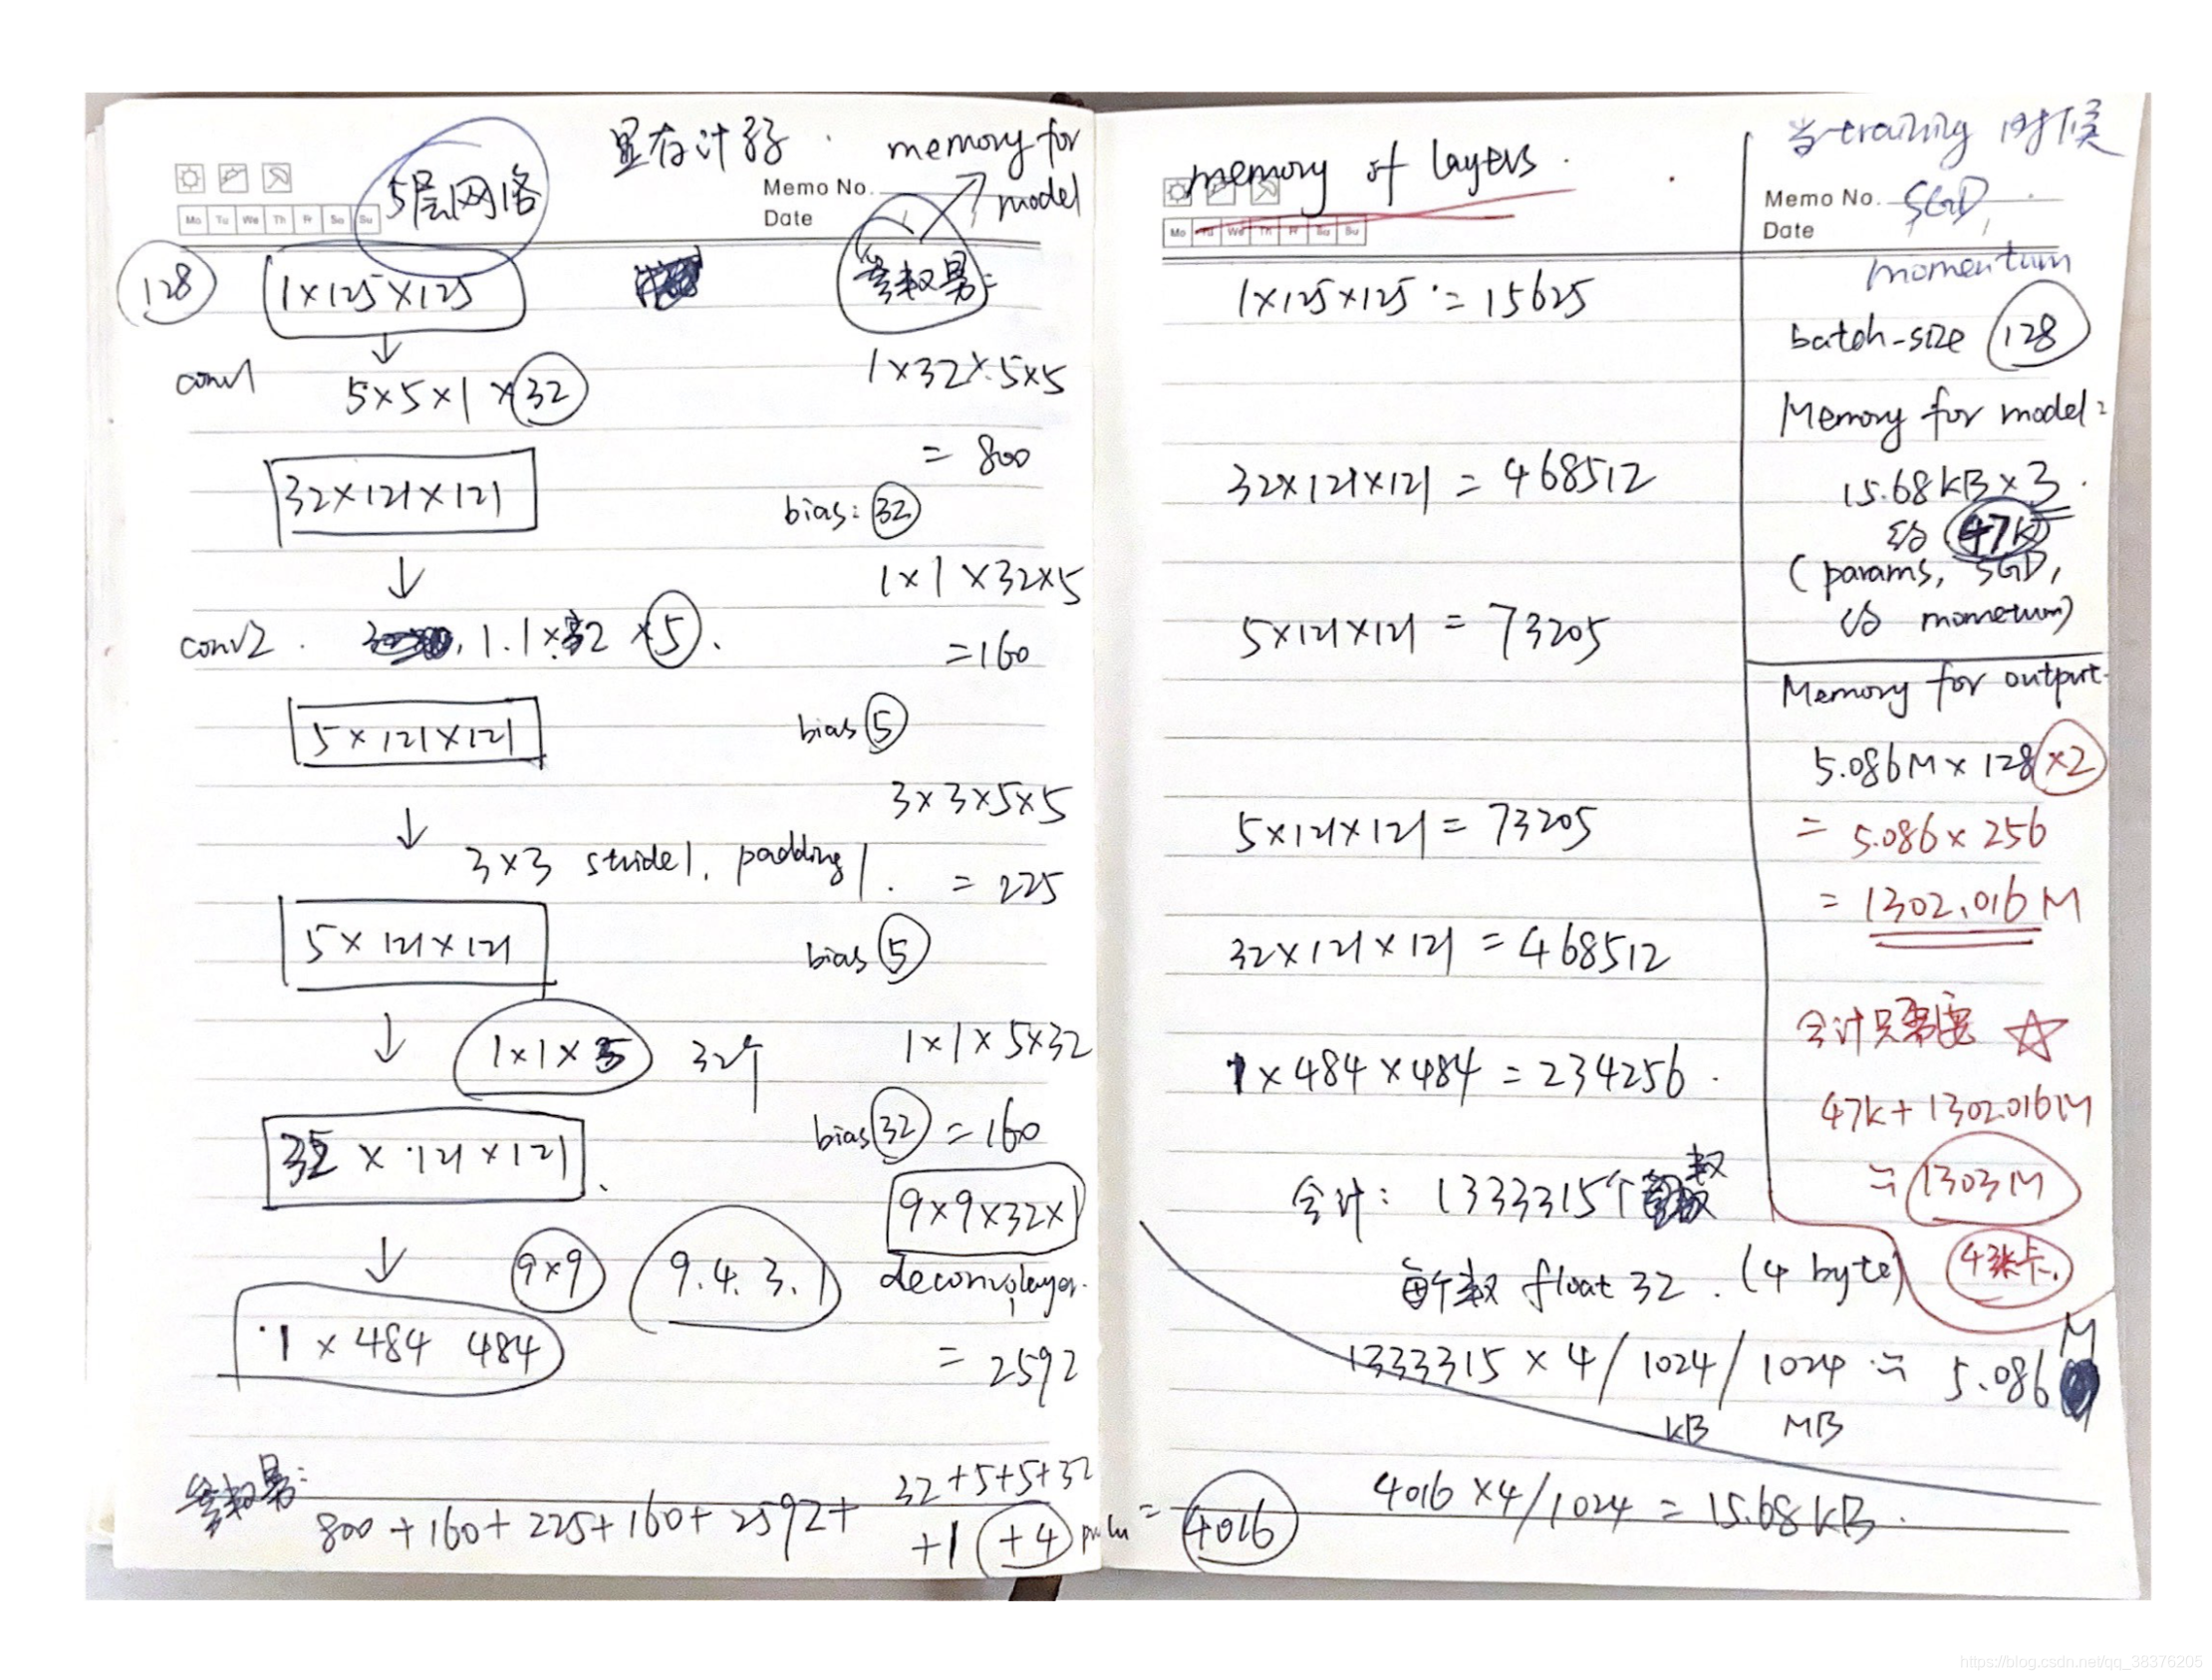 显存计算. memory for model
5层网络
Memo No.
Date
Mo Tu We Th Fr Sa Su
128 1×125×125 参数量:
conv1 5×5×1×32 1×32×5×5
= 800
32×121×121 bias: 32
1×1×32×5
conv2. 1.1×32×5. =160
5×121×121 bias 5
3×3×5×5
3×3 stride1. padding1. = 225
5×121×121 bias 5
1×1×5 32个 1×1×5×32
32×121×121 bias 32 =160
9×9×32×1
9×9 9.4.3.1 deconvlayer.
1×484 484 = 2592
参数量: 800+160+225+160+2592+ 32+5+5+32
+1 +4 prelu = 4016
memory of layers.
Mo Tu We Th Fr Sa Su
1×125×125 = 15625
32×121×121 = 468512
5×121×121 = 73205
5×121×121 = 73205
32×121×121 = 468512
1×484×484 = 234256.
合计: 1333315个数
每个数 float 32. (4 byte)
1333315×4/1024/1024 ≈ 5.086 M
KB MB
4016×4/1024 = 15.68KB.
当training时候
Memo No. SGD,
Date
momentum
batch-size 128
Memory for model:
15.68KB×3.
约 47K
(params, SGD,
momentum)
Memory for output.
5.086M×128×2
= 5.086×256
= 1302.016M
合计只需要 ☆
47K+1302.016M
≈ 1303M
4张卡.
https://blog.csdn.net/qq_38376205